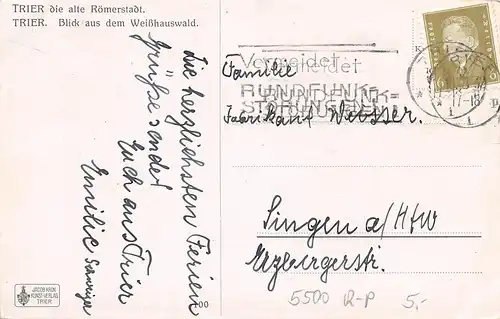 TRIER die alte Römerstadt.
TRIER. Blick aus dem Weißhauswald.
Die herzlichsten Ferien
Grüße sendet
Euch aus Trier
Emilie
Vermeidet
RUNDFUNK-
STÖRUNGEN
TRIER
17-18
Familie
Fabrikant Weisser.
Singen a/Htw
Erzbergerstr.
JACOB KRON
KUNST-VERLAG
TRIER
00
5500 R-P 5,-